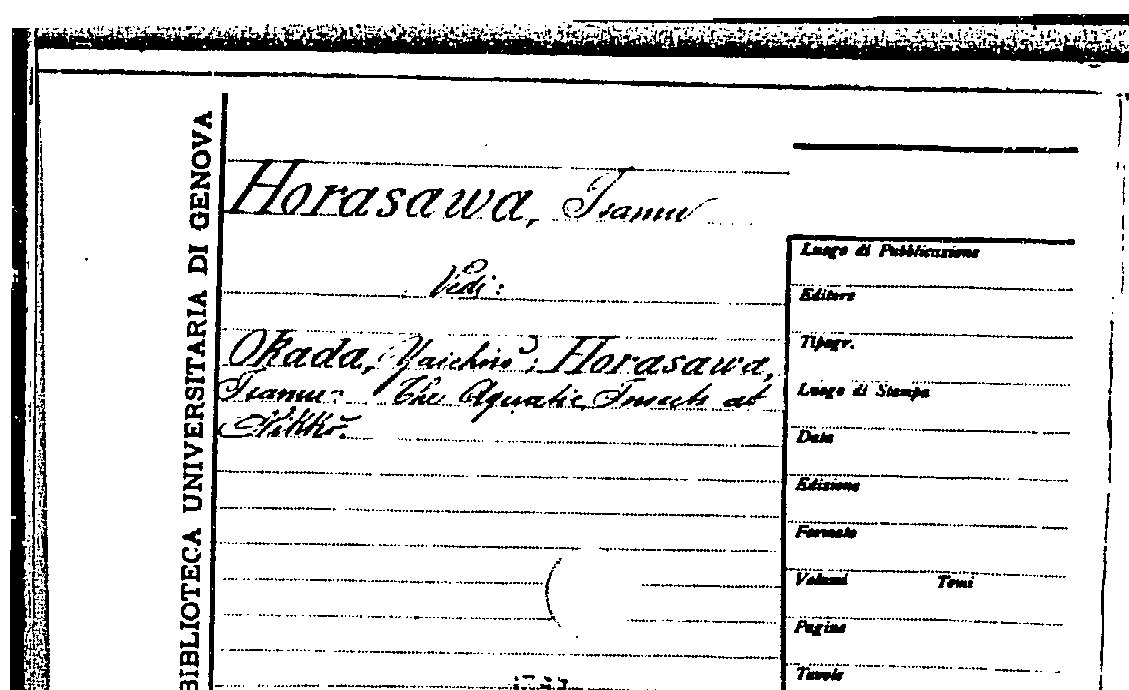 BIBLIOTECA UNIVERSITARIA DI GENOVA
Horasawa, Isamu
Vedi:
Okada, Yaichirō; Horasawa,
Isamu - The Aquatic Insects at
Nikkō.
Luogo di Pubblicazione
Editore
Tipogr.
Luogo di Stampa
Data
Edizione
Formato
Volumi Tomi
Pagine
Tavole